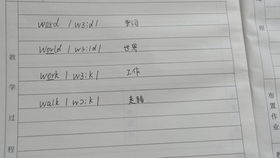 word |wɜ:d| 单词
world |wɜ:ld| 世界
work |wɜ:k| 工作
walk |wɔ:k| 走路
教学过程
布置作业